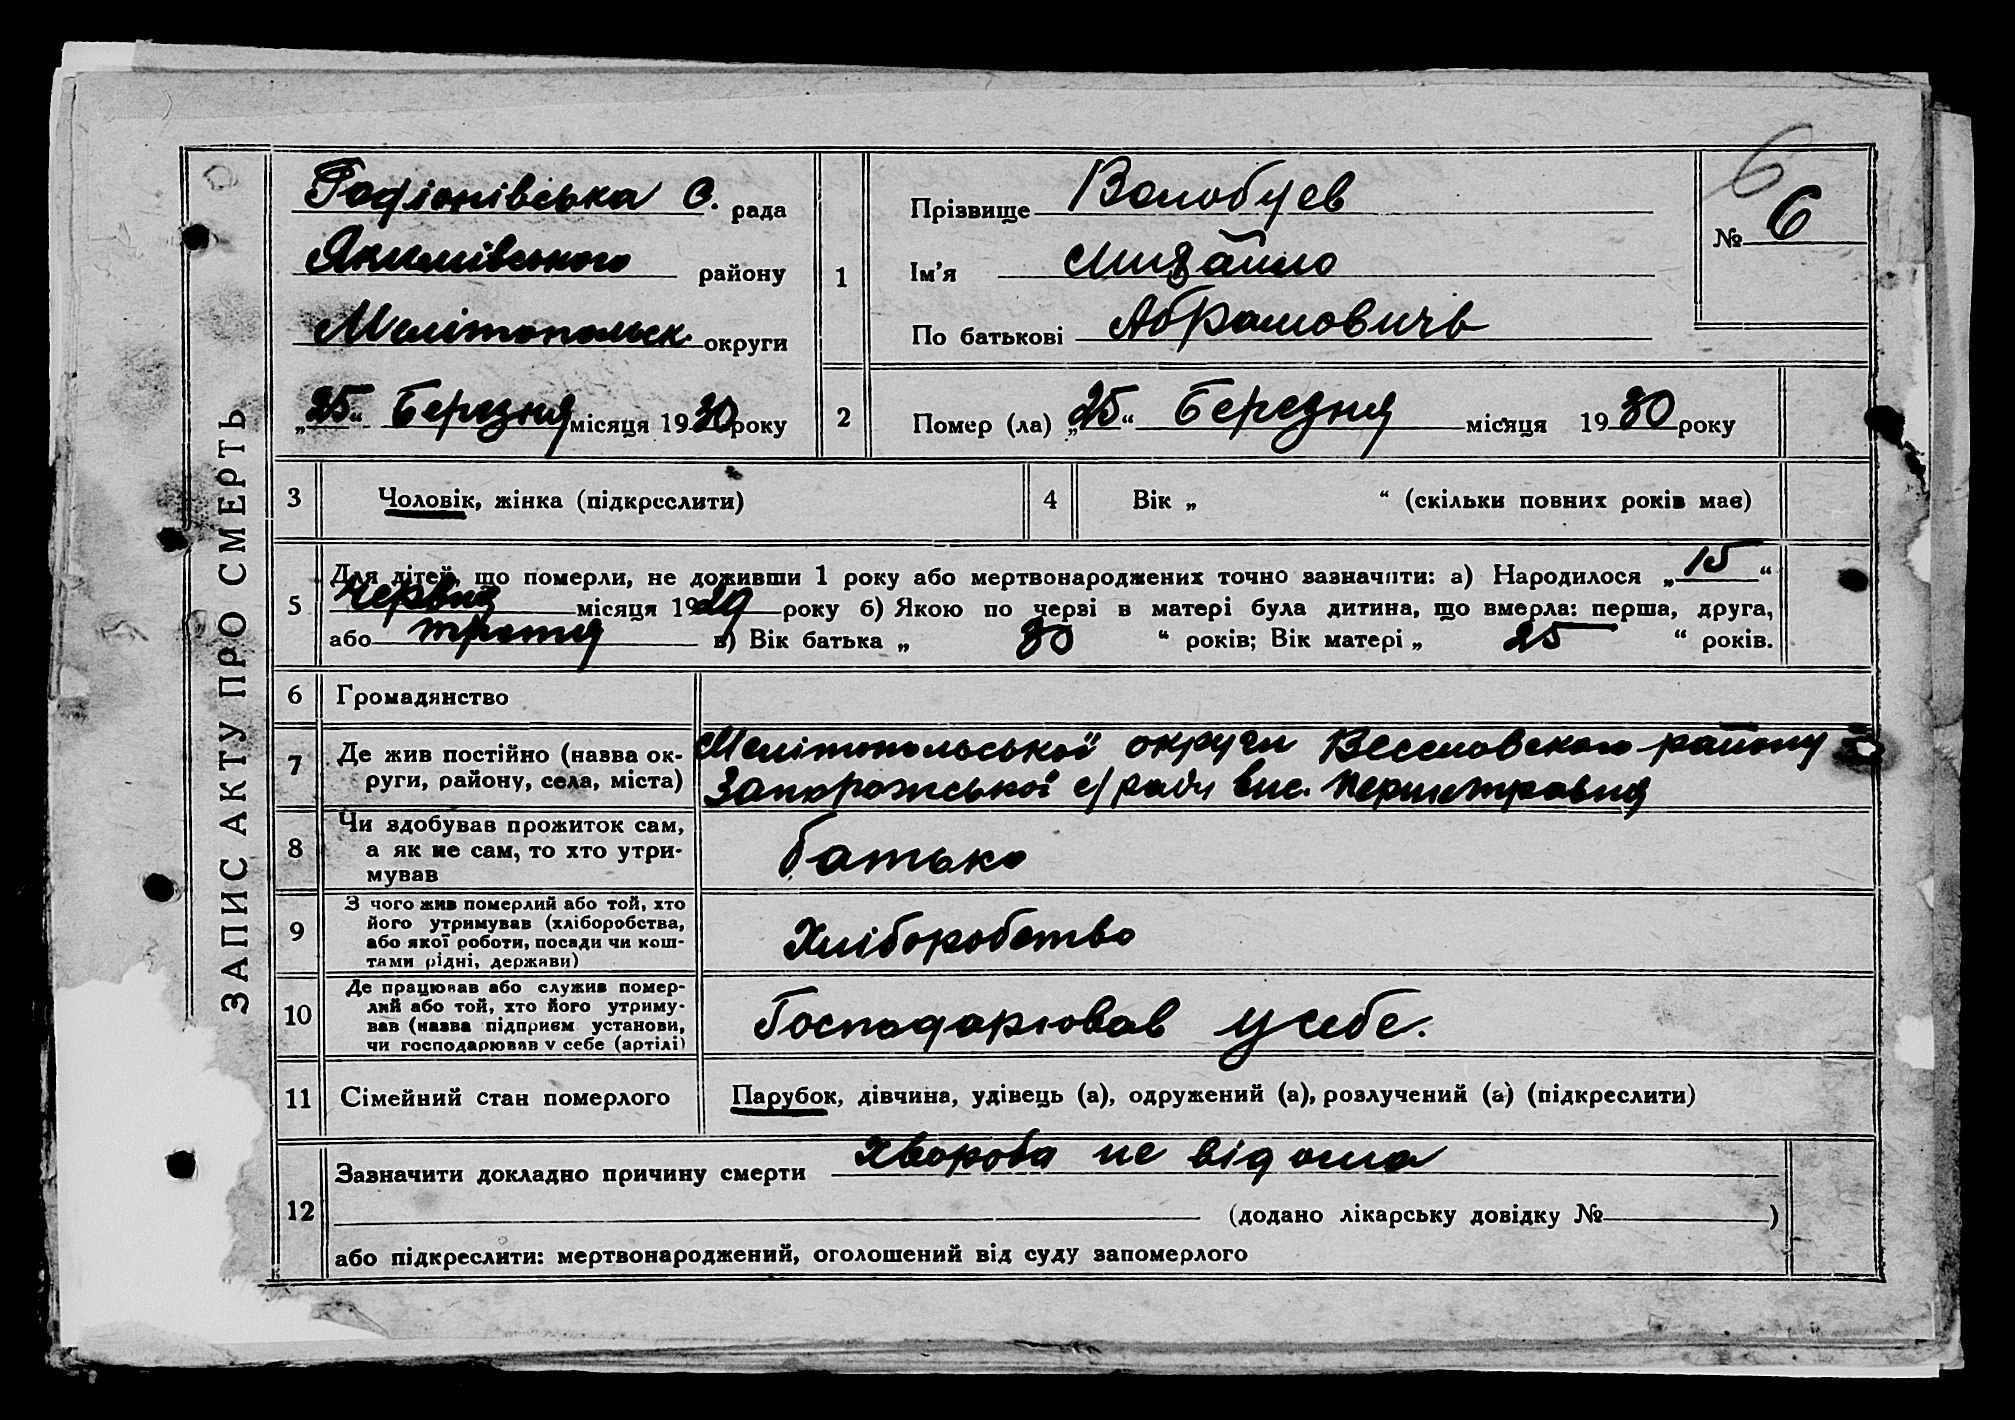 ЗАПИС АКТУ ПРО СМЕРТЬ
Родіонівська С. рада
Якимівського району
Мелітопольск. округи
„25“ Березня місяця 1930 року
1
Прізвище Волобуев
Ім’я Михайло
По батькові Абрамовичь
6
№ 6
2
Помер (ла) „25“ Березня місяця 1930 року
3
Чоловік, жінка (підкреслити)
4
Вік „ “ (скільки повних років має)
5
Для дітей, що померли, не доживши 1 року або мертвонароджених точно зазначити: а) Народилося „15“
Червня місяця 1929 року б) Якою по черві в матері була дитина, що вмерла: перша, друга,
або третя в) Вік батька „ 30 “ років; Вік матері „ 25 “ років.
6
Громадянство
7
Де жив постійно (назва ок-
руги, району, села, міста)
Мелітопольської округи Веселовского району
Запорожської с/ради вис. Першетравня
8
Чи здобував прожиток сам,
а як не сам, то хто утри-
мував
батько
9
З чого жив померлий або той, хто
його утримував (хліборобства,
або якої роботи, посади чи кош-
тами рідні, держави)
Хліборобство
10
Де працював або служив помер-
лий або той, хто його утриму-
вав (назва підприєм установи,
чи господарював у себе (артілі)
Господарював у себе.
11
Сімейний стан померлого
Парубок, дівчина, удівець (а), одружений (а), розлучений (а) (підкреслити)
12
Зазначити докладно причину смерти Хвороба не відома
(додано лікарську довідку № )
або підкреслити: мертвонароджений, оголошений від суду запомерлого